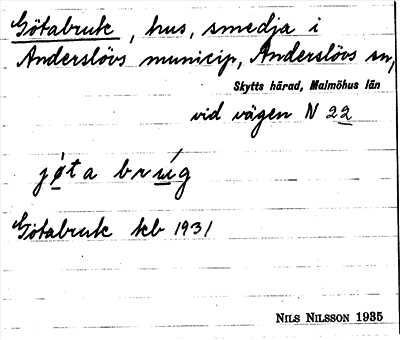 Götabruk, hus, smedja i
Anderslövs municip, Anderslövs sn,
Skytts härad, Malmöhus län
vid vägen N 22
jøta brug
Götabruk kb 1931
NILS NILSSON 1935